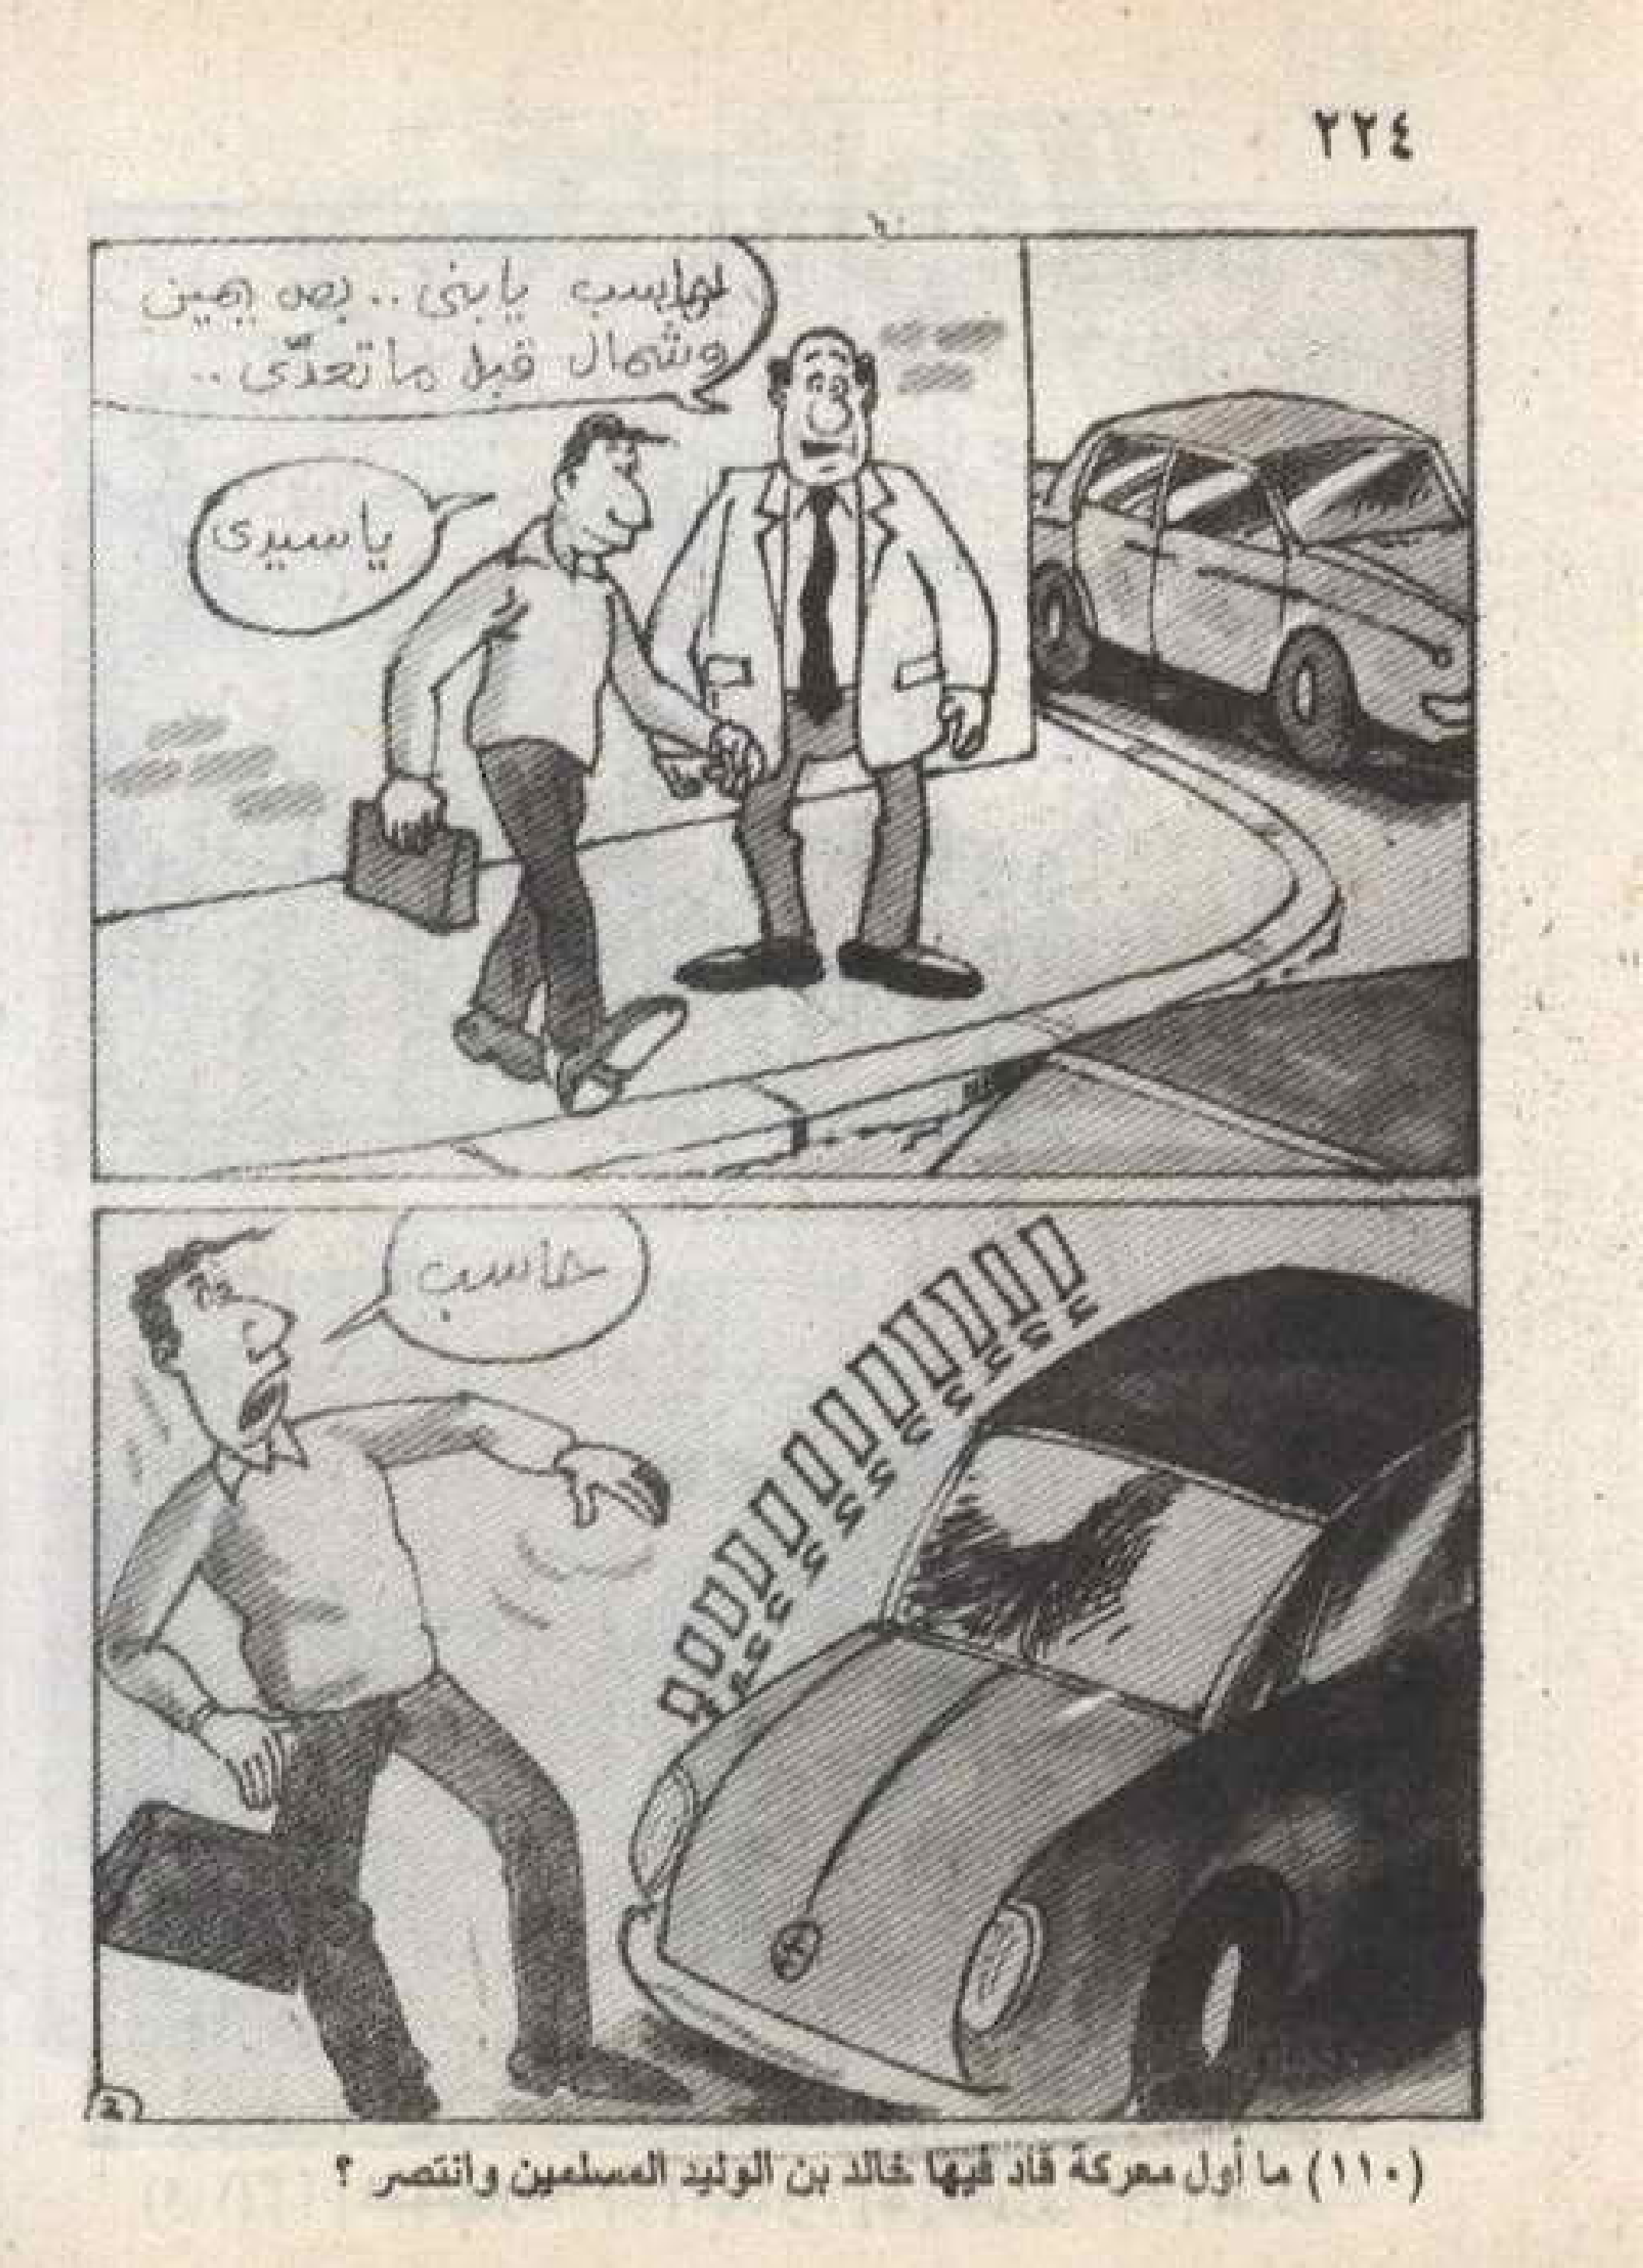 ٢٢٤
حاسب يابنى .. بص يمين
وشمال قبل ماتعدّى ..
ياسيدى
حاسب
(١١٠) ما أول معركة قاد فيها خالد بن الوليد المسلمين وانتصر ؟